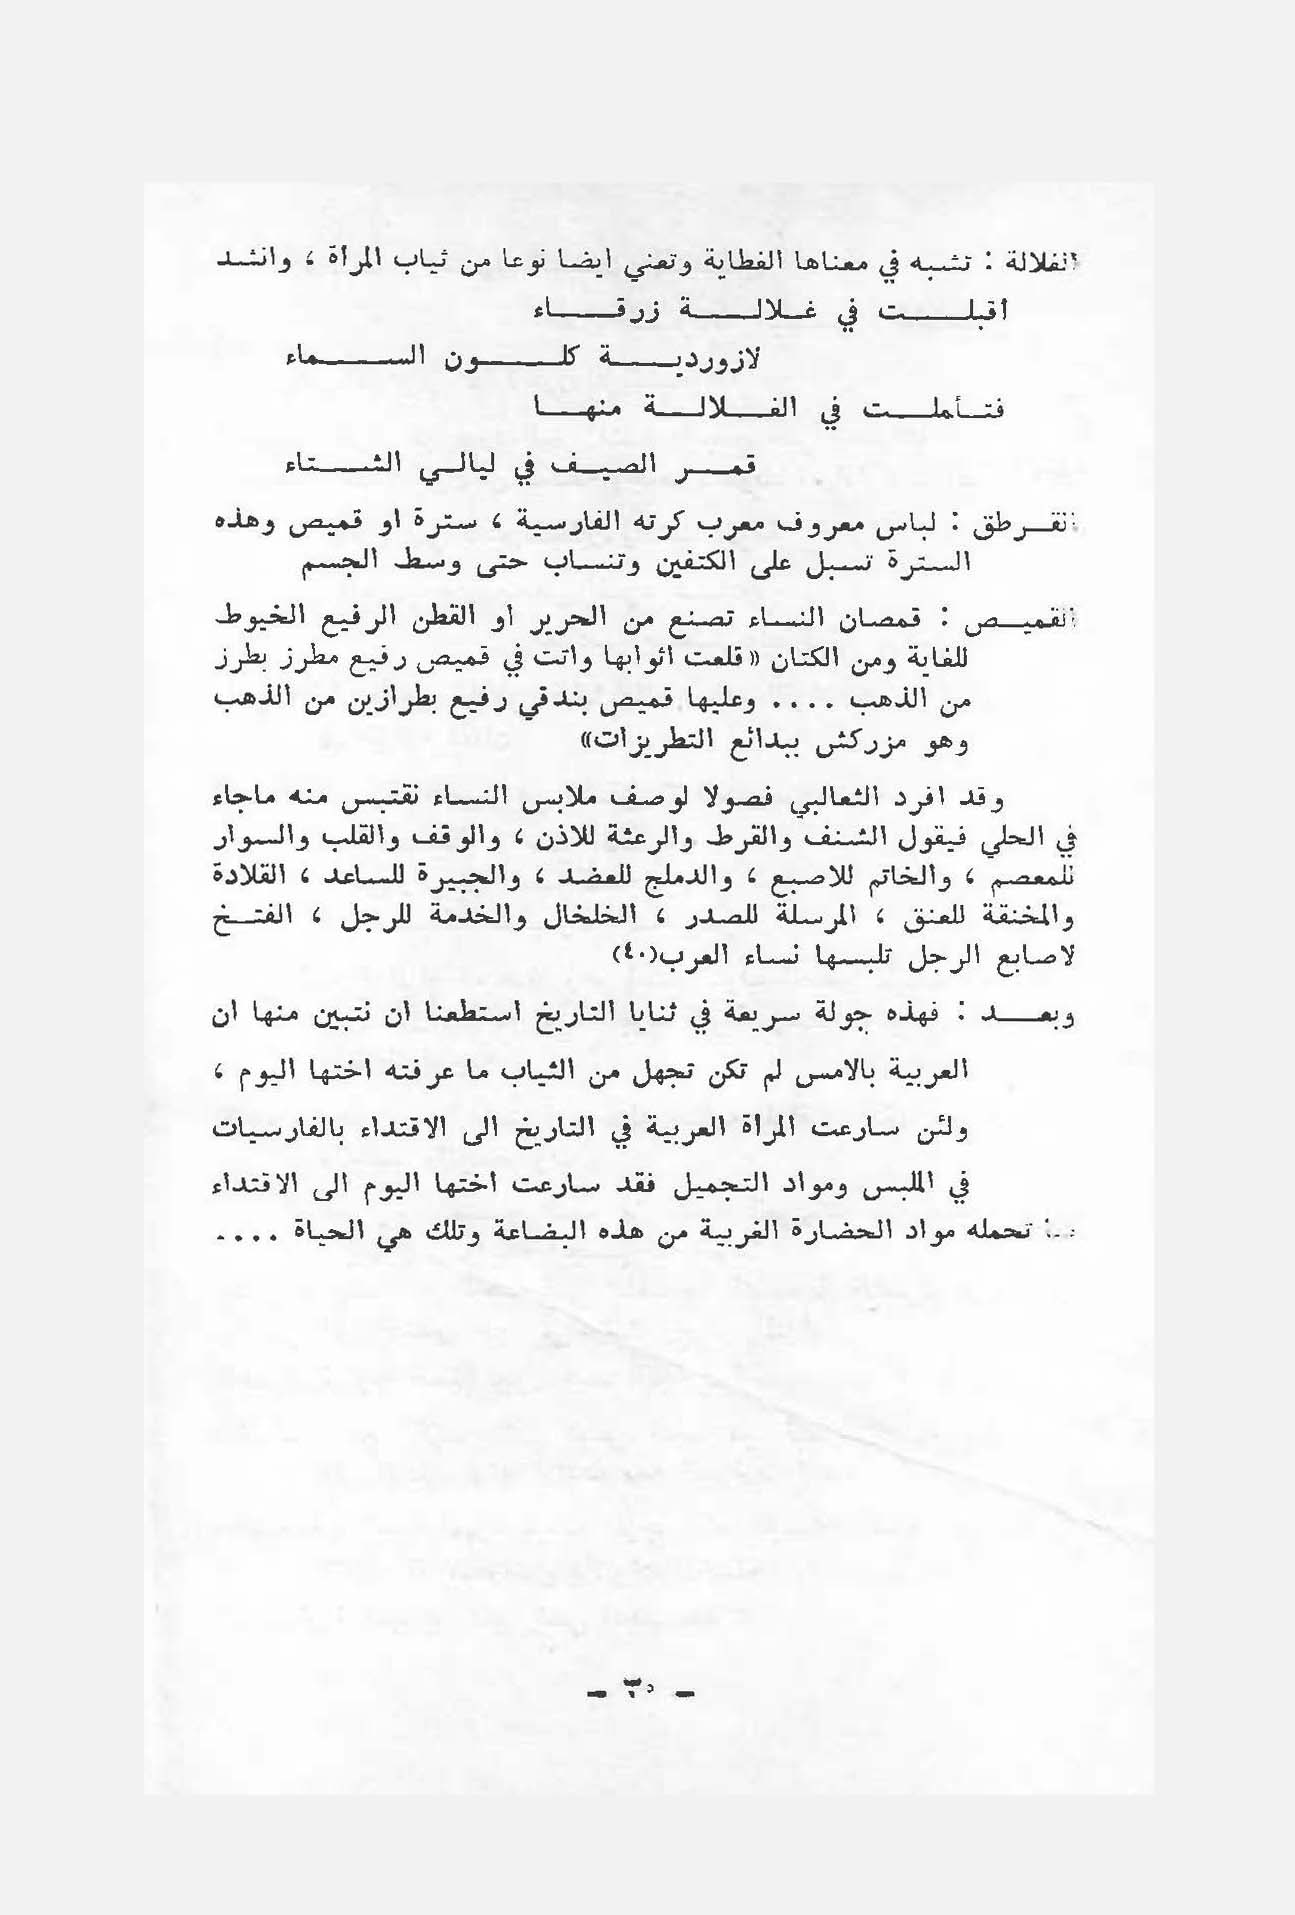 الغلالة : تشبه في معناها الغطاية وتعني ايضا نوعا من ثياب المرأة ، وانشد
أقبلـــت في غـلالـــة زرقـــاء
لازورديـــة كلـــون الســـماء
فتـأملـت في الغـــلالـــة منهـــا
قمـــر الصيـف في ليالـي الشـــتاء
القـرطق : لباس معروف معرب كرته الفارسية ، سترة او قميص وهذه
السترة تسبل على الكتفين وتنساب حتى وسط الجسم
القميـص : قمصان النساء تصنع من الحرير او القطن الرفيع الخيوط
للغاية ومن الكتان «قلعت اثوابها واتت في قميص رفيع مطرز بطرز
من الذهب .... وعليها قميص بندقي رفيع بطرازين من الذهب
وهو مزركش ببدائع التطريزات»
وقد افرد الثعالبي فصولا لوصف ملابس النساء نقتبس منه ماجاء
في الحلي فيقول الشنف والقرط والرعثة للاذن ، والوقف والقلب والسوار
للمعصم ، والخاتم للاصبع ، والدملج للعضد ، والجبيرة للساعد ، القلادة
والمخنقة للعنق ، المرسلة للصدر ، الخلخال والخدمة للرجل ، الفتـخ
لاصابع الرجل تلبسها نساء العرب(٤٠)
وبعـــد : فهذه جولة سريعة في ثنايا التاريخ استطعنا ان نتبين منها ان
العربية بالامس لم تكن تجهل من الثياب ما عرفته اختها اليوم ،
ولئن سارعت المراة العربية في التاريخ الى الاقتداء بالفارسيات
في الملبس ومواد التجميل فقد سارعت اختها اليوم الى الاقتداء
تحمله مواد الحضارة الغربية من هذه البضاعة وتلك هي الحياة ....